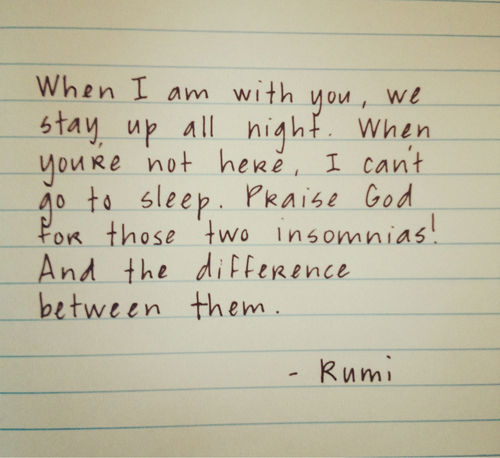 When I am with you, we
stay up all night. When
you're not here, I can't
go to sleep. Praise God
for those two insomnias!
And the difference
between them.
- Rumi